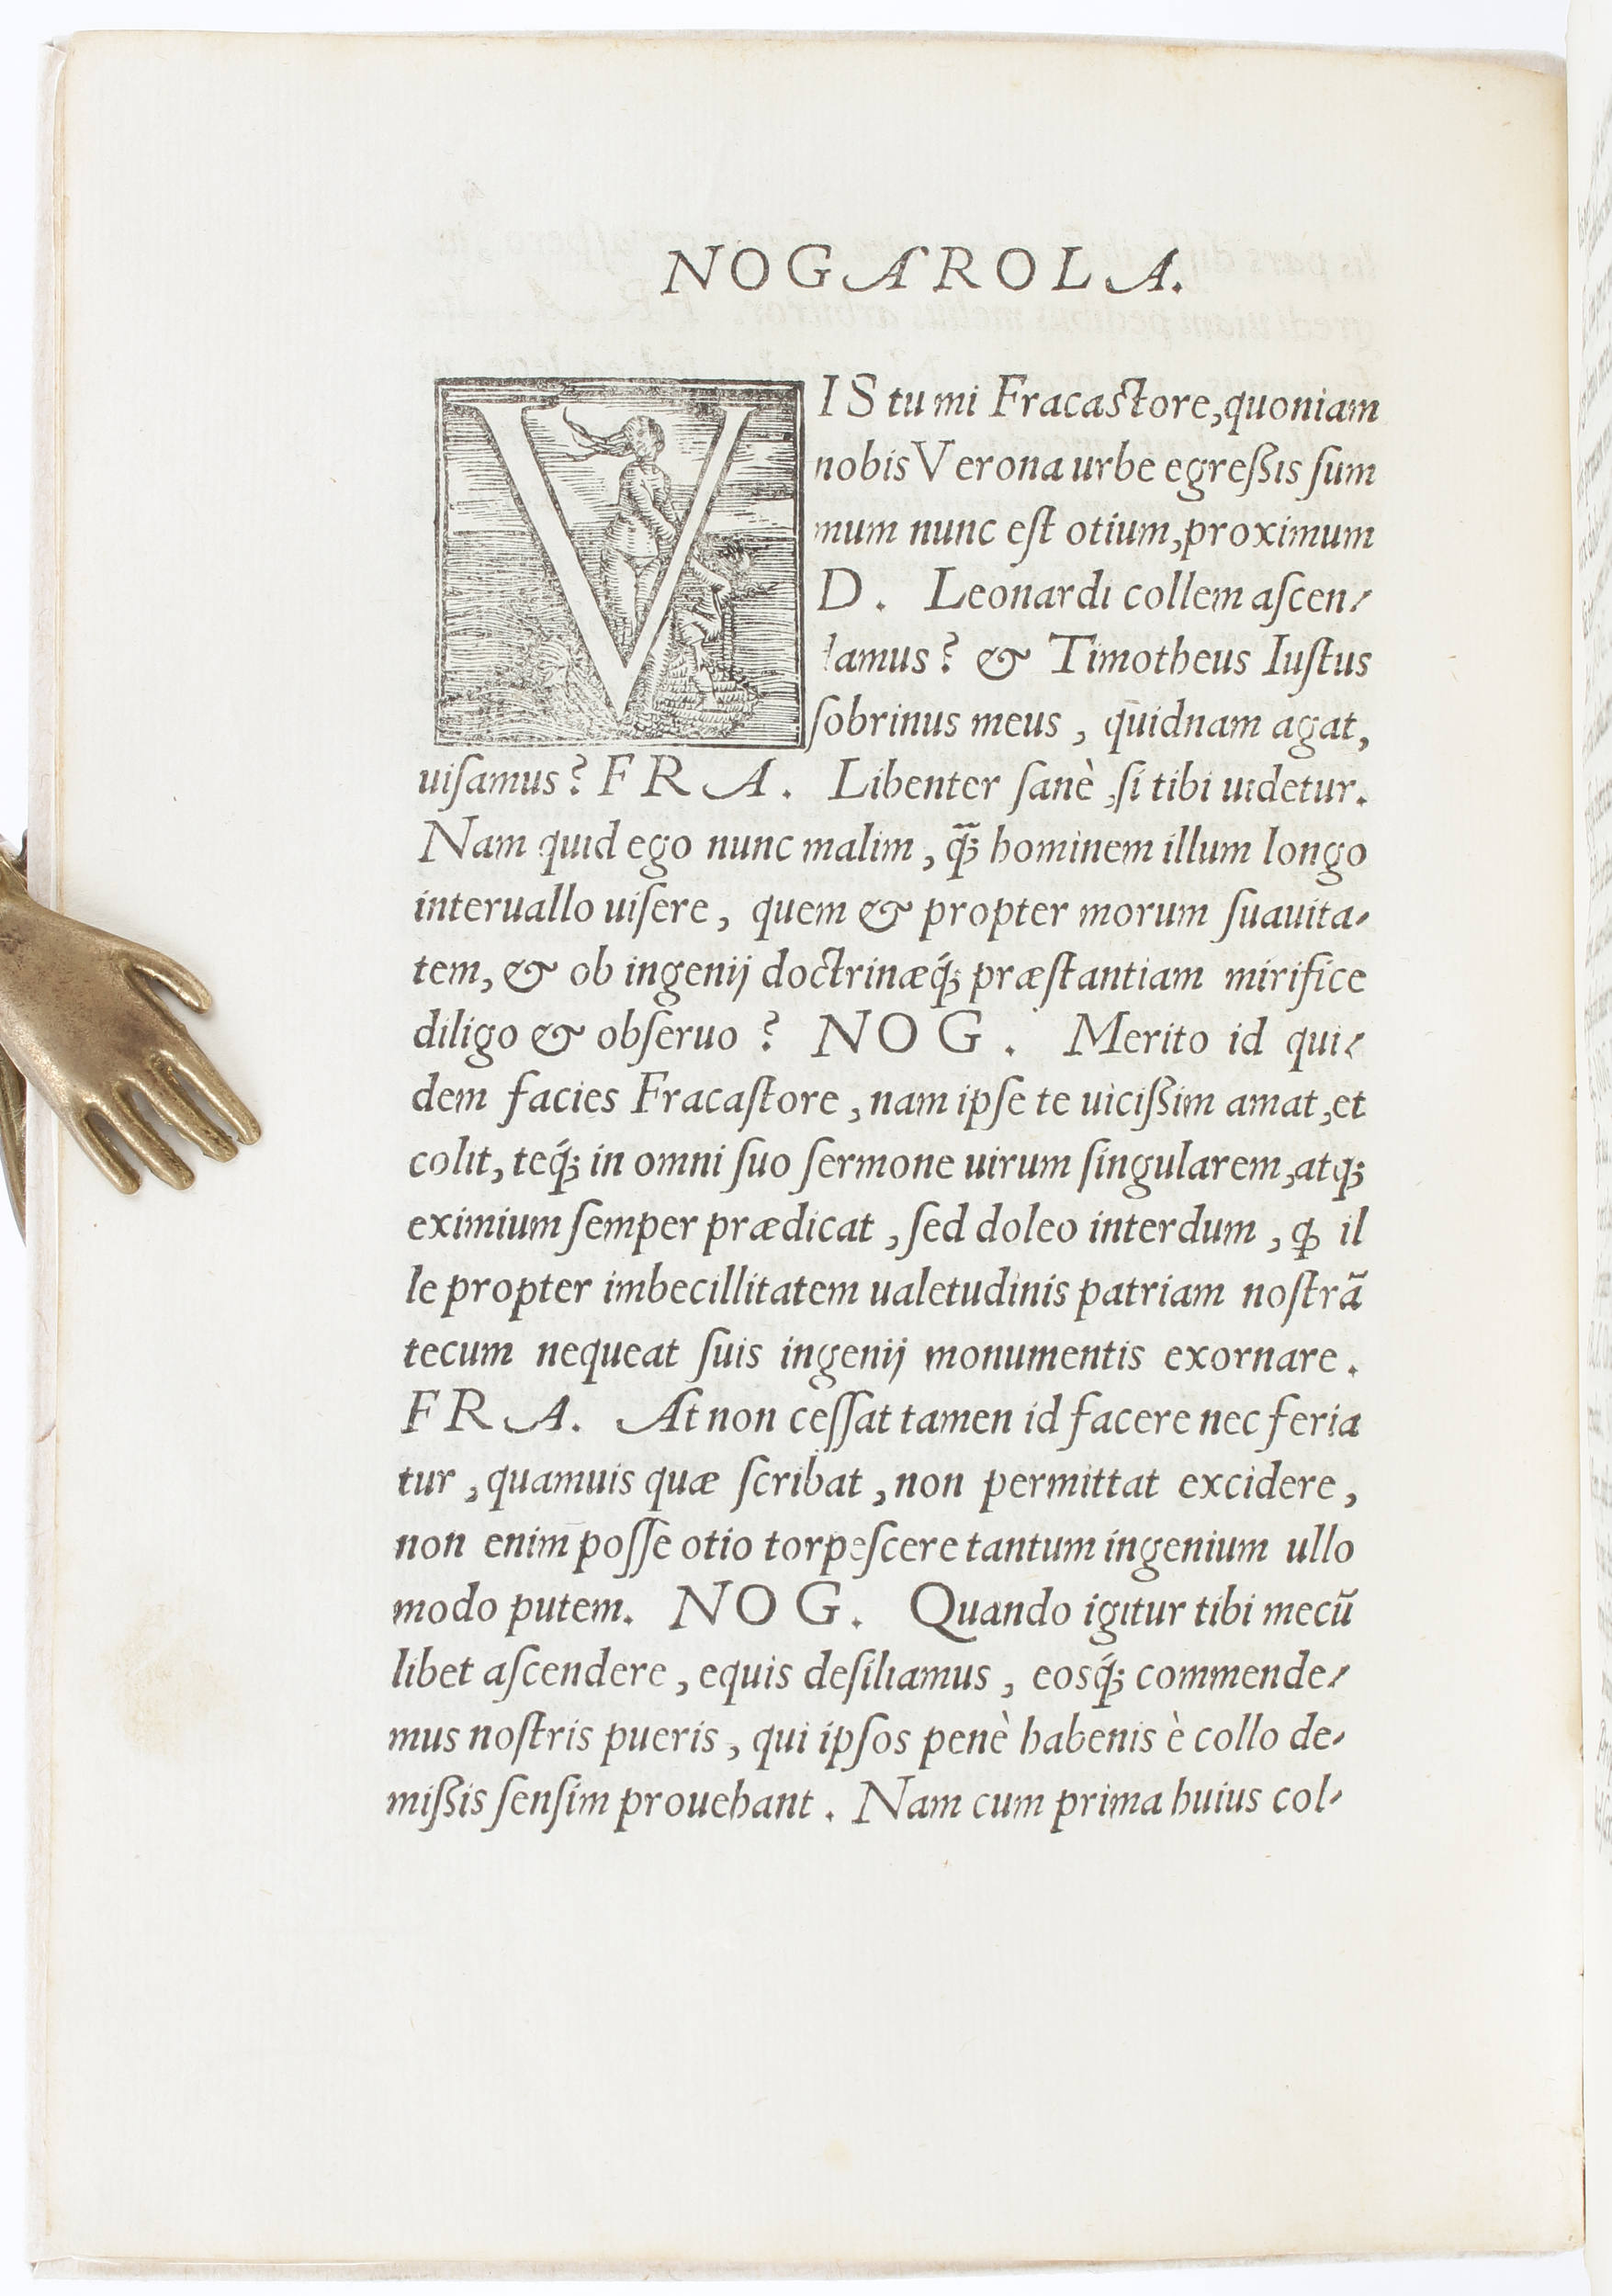 NOGAROLA.
VIS tu mi Fracastore, quoniam
nobis Verona urbe egreßis sum
mum nunc est otium, proximum
D. Leonardi collem ascen-
damus? & Timotheus Iustus
sobrinus meus, quidnam agat,
uisamus? FRA. Libenter sanè, si tibi uidetur.
Nam quid ego nunc malim, q̃ꝫ hominem illum longo
interuallo uisere, quem & propter morum suauita-
tem, & ob ingenij doctrinæq́ꝫ præstantiam mirifice
diligo & obseruo? NOG. Merito id qui-
dem facies Fracastore, nam ipse te uicißim amat, et
colit, teq́ꝫ in omni suo sermone uirum singularem, atqꝫ
eximium semper prædicat, sed doleo interdum, ꝙ il
le propter imbecillitatem ualetudinis patriam nostrã
tecum nequeat suis ingenij monumentis exornare.
FRA. At non cessat tamen id facere nec feria
tur, quamuis quæ scribat, non permittat excidere,
non enim posse otio torpescere tantum ingenium ullo
modo putem. NOG. Quando igitur tibi mecũ
libet ascendere, equis desiliamus, eosq́ꝫ commende-
mus nostris pueris, qui ipsos penè habenis è collo de-
mißis sensim prouehant. Nam cum prima huius col-